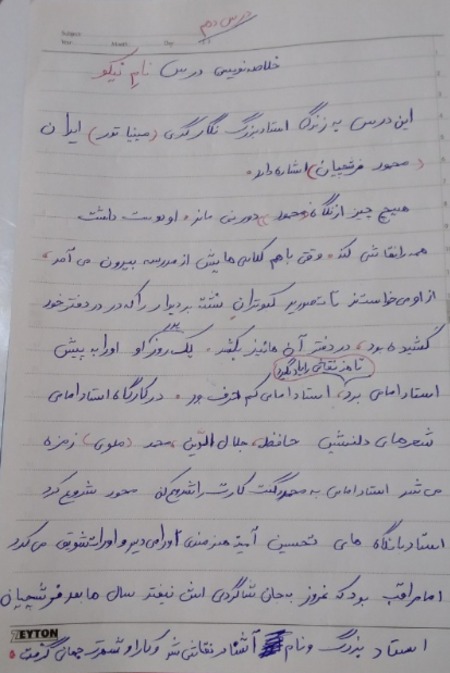 درس دهم
خلاصه‌نویسی درس نام نیکو
این درس به زندگی استاد بزرگ نگارگری (مینیاتور) ایران
(محمود فرشچیان) اشاره دارد.
هیچ چیز از نگاه محمود دور نمی ماند. او دوست داشت
همه را نقاشی کند. وقتی با هم کلاسی هایش از مدرسه بیرون می آمد،
از او می خواستند تا تصویر کبوتران نشسته بر دیوار را که در دفتر خود
کشیده بود، در دفتر آن ها نیز بکشد. یک روز پدر او او را به پیش
تا هنر نقاشی را یاد بگیرد
استاد امامی برد، استاد امامی کم حرف بود. در کارگاه استاد امامی
شعرهای دلنشین حافظ، جلال الدّین محمد (مولوی) زمزمه
می شد استاد امامی به محمود گفت کارت را شروع کن محمود شروع کرد
استاد با نگاه های تحسین آمیز هنرمندی او را می دید و او را تشویق می کرد
اما مراقب بود که غرور به جان شاگردی اش نیفتد سال ها بعد فرشچیان
ZEYTON
استاد بزرگ و نام آشنا در نقاشی شد و کار او شهرت جهانی گرفت.